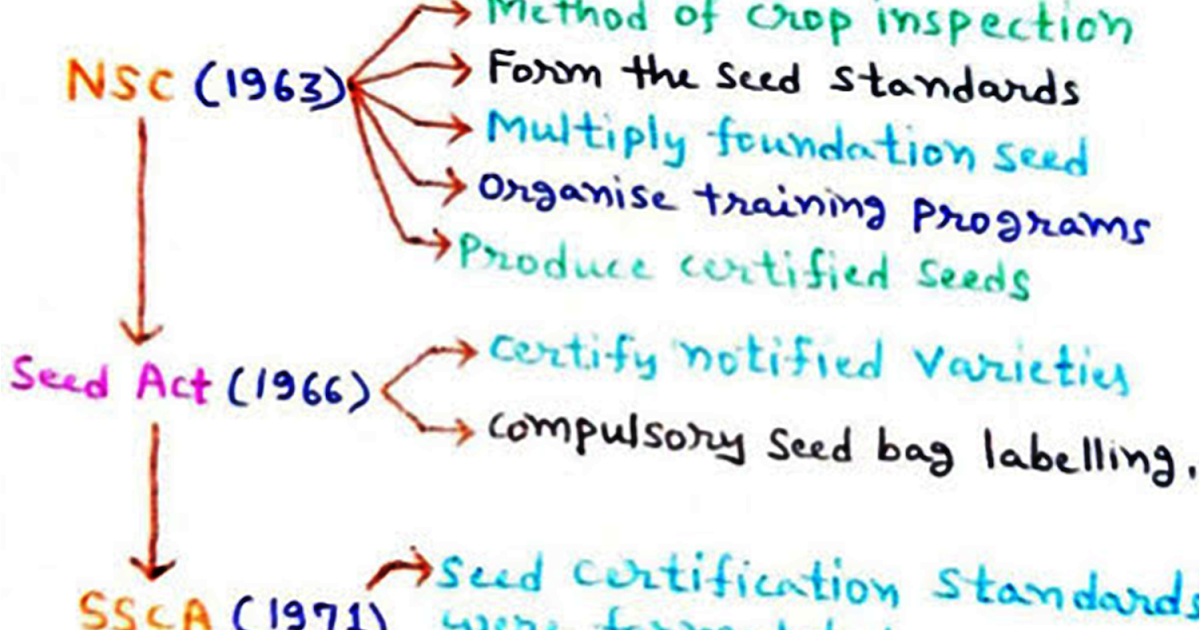 Method of crop inspection
NSC (1963)
Form the seed standards
Multiply foundation seed
Organise training programs
Produce certified seeds
Seed Act (1966)
Certify notified varieties
Compulsory seed bag labelling.
SSCA (1971)
Seed certification standards
were